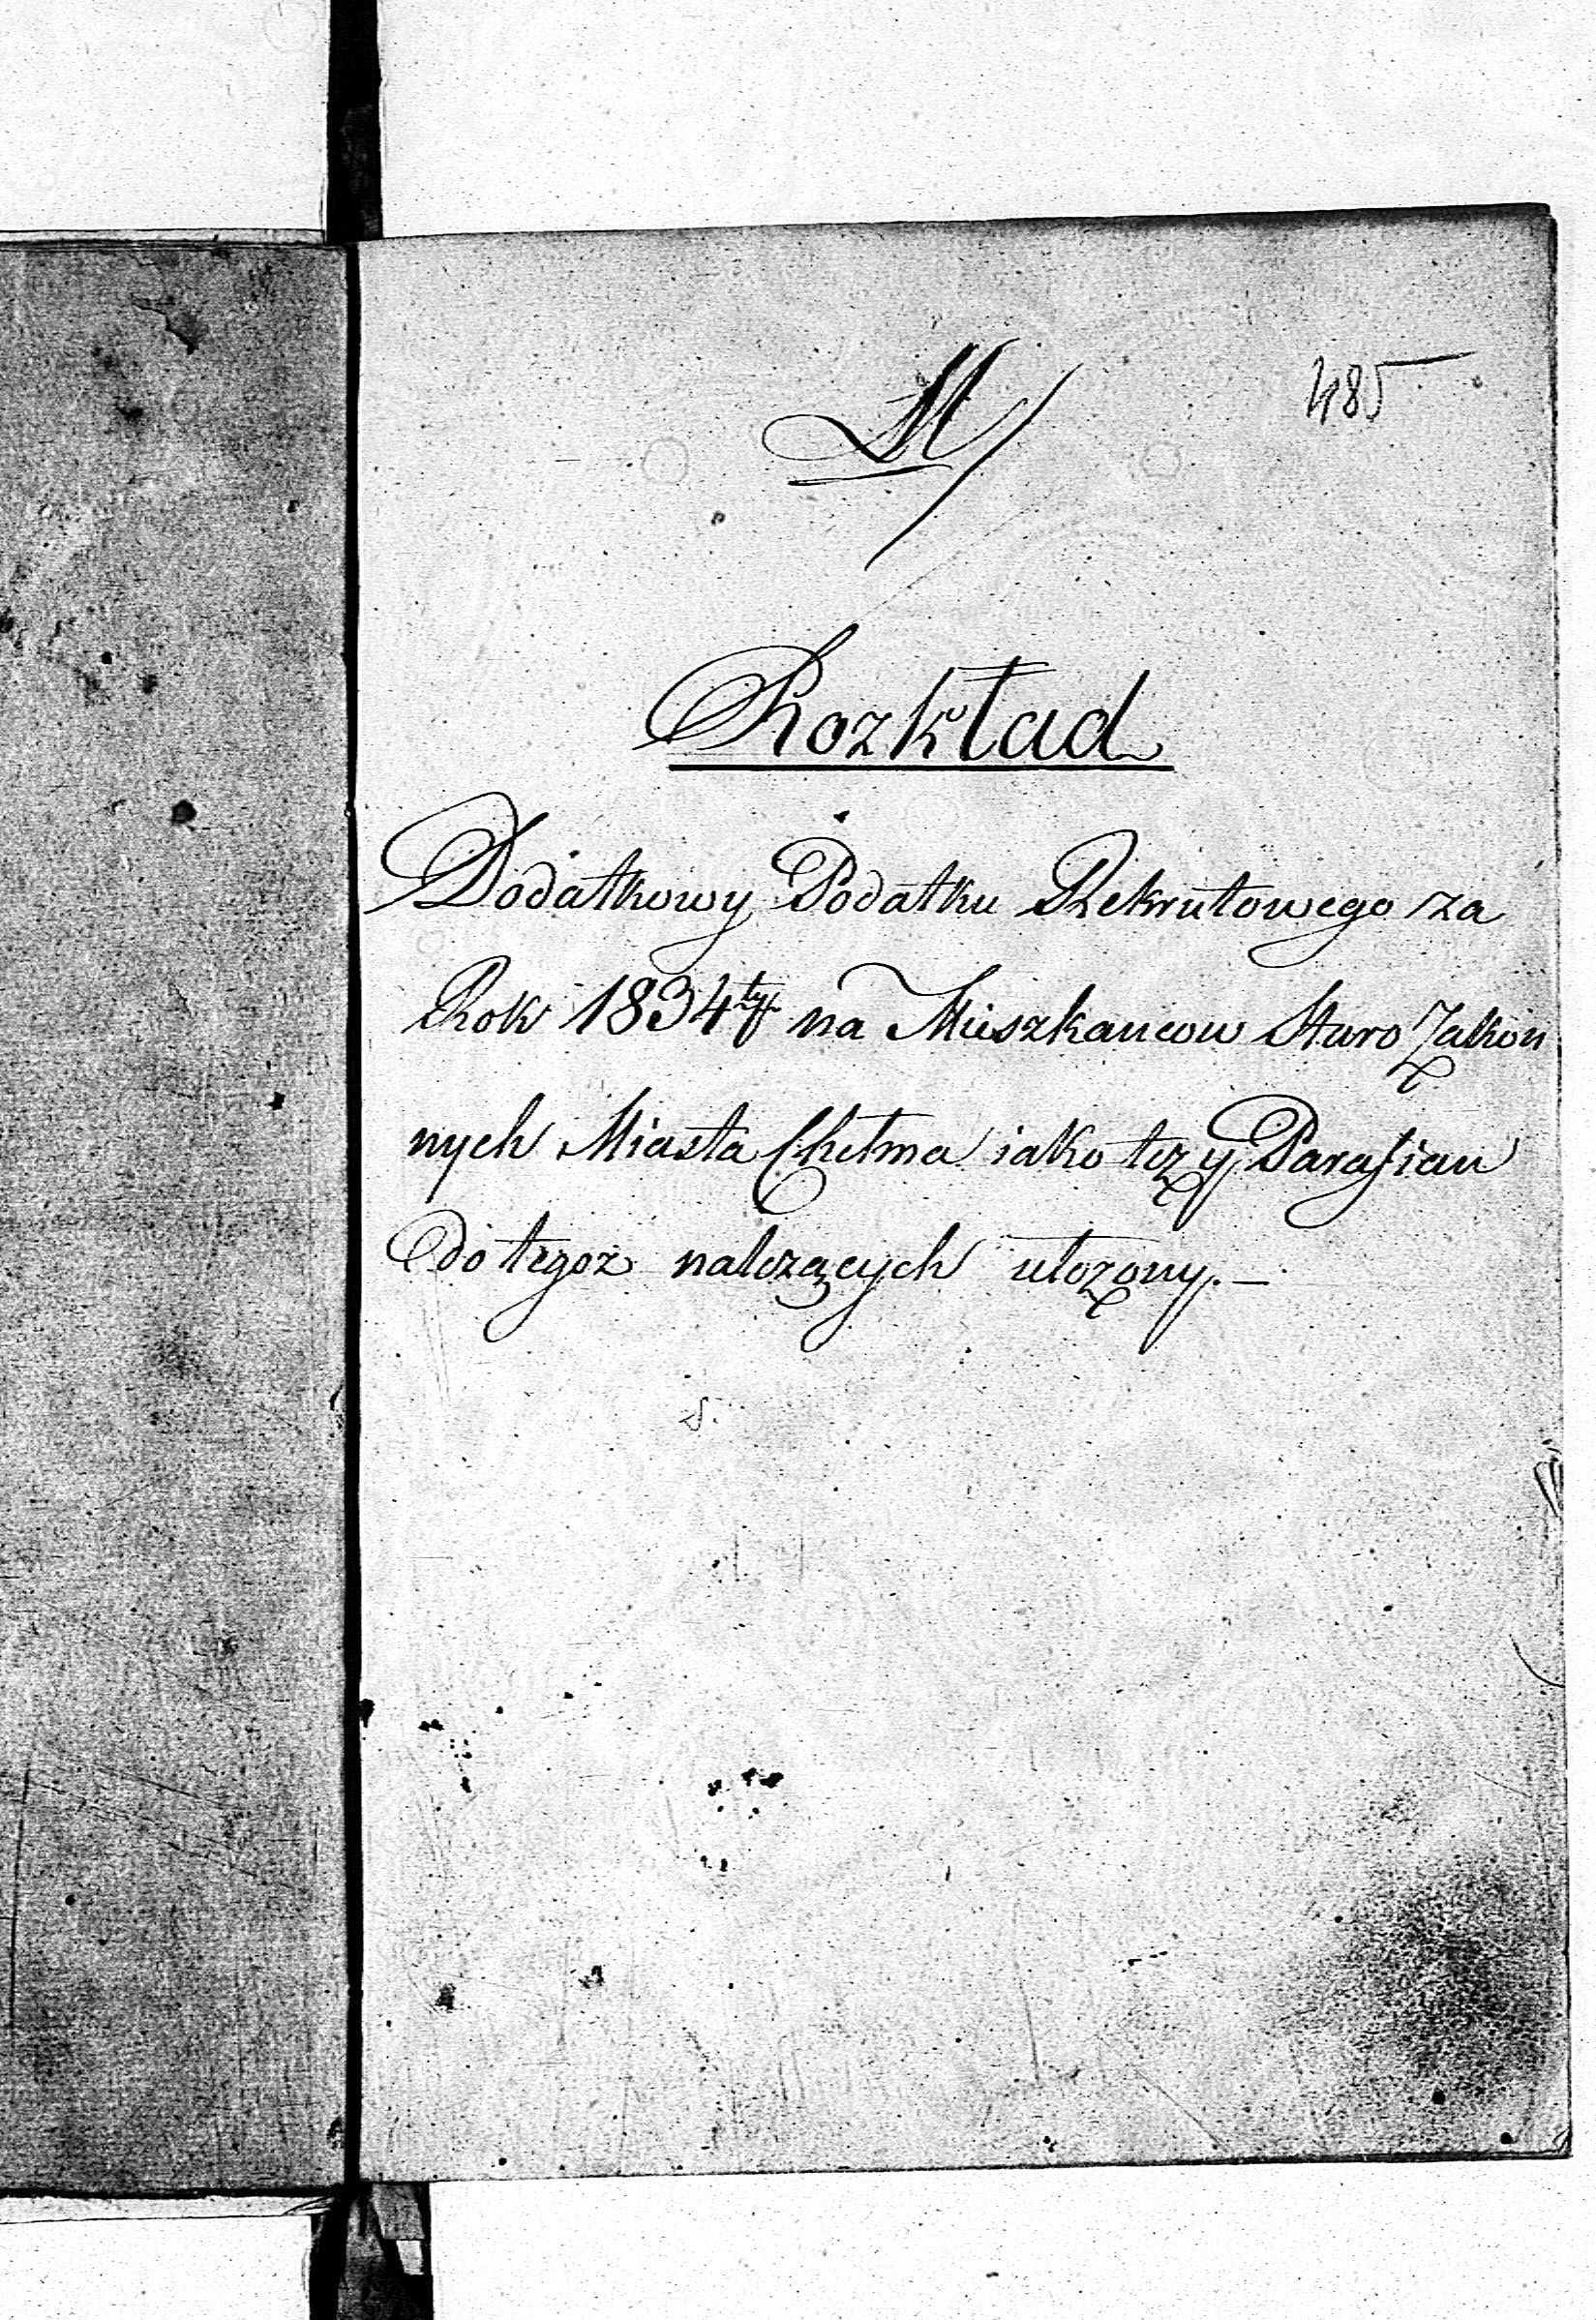 M/
485
Rozkład
Dodatkowy Podatku Rekrutowego za
Rok 1834ty na Mieszkancow Staro Zakon
nych Miasta Chełma iako też y Parafian
do tegoz nalezących ułożony. —